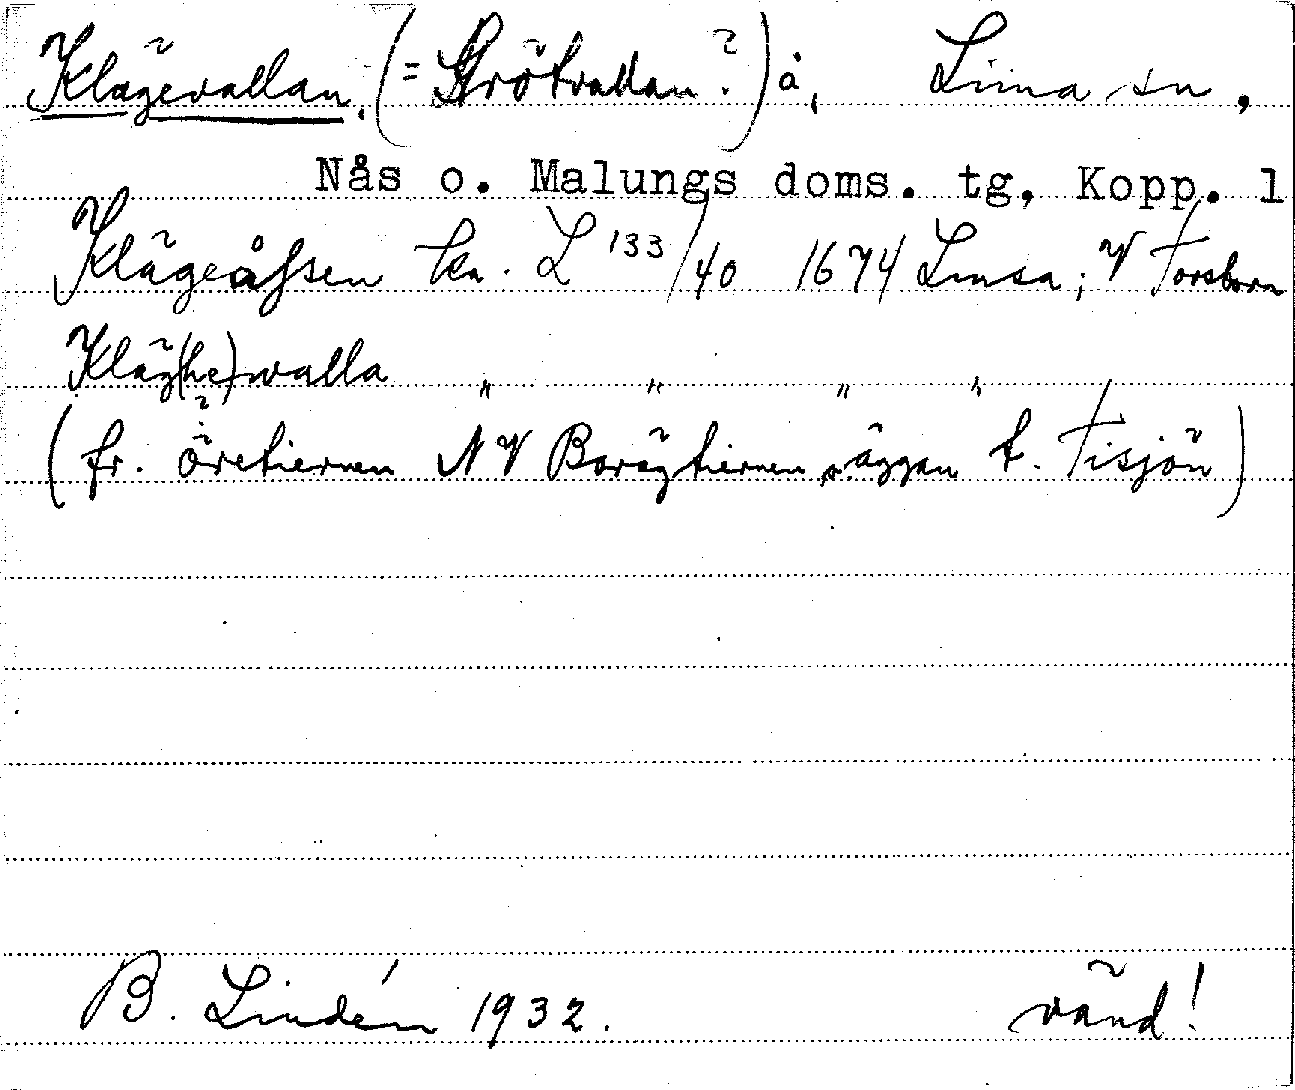 Klägevallan. (= Strötvallan?) å, Lima sn,
Nås o. Malungs doms. tg. Kopp. l
Klägeåhsen ka. L 133/40 1674 Limsa; V Torsborn
Kläg(he)walla " " " "
(fr. öretiernen NV Borägtiernen o. äggan t. Tisjön)
B. Lindén 1932. vänd!